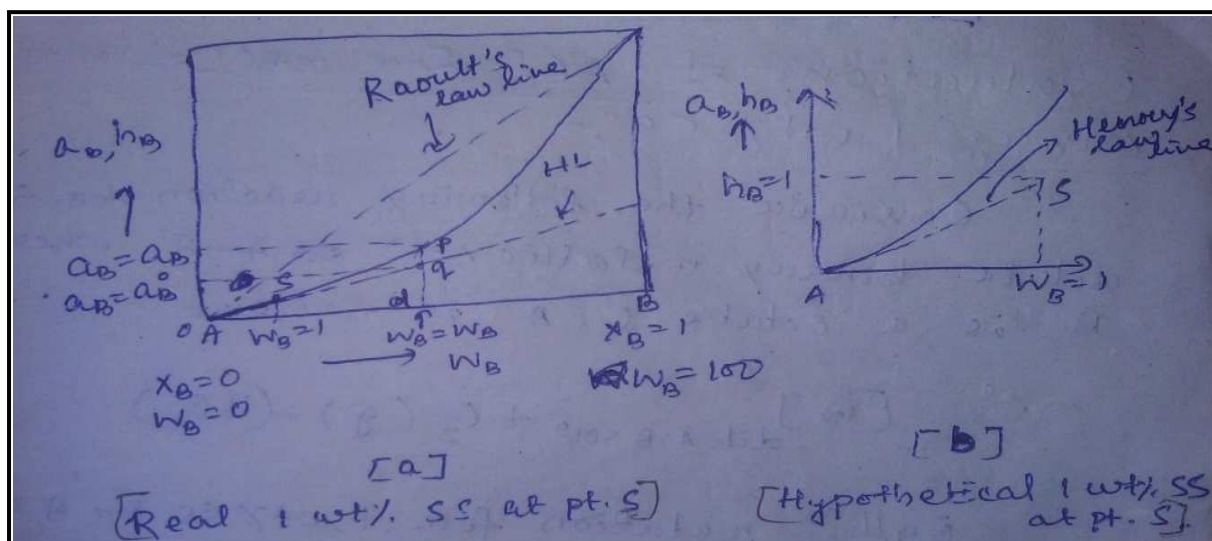 Raoult's
law line
a_B, h_B
HL
a_B = a_B
a_B = a°_B
S
P
q
d
0 A
W_B = 1
W_B = W_B
B
X_B = 1
W_B
X_B = 0
W_B = 0
W_B = 100
[a]
[Real 1 wt% SS at pt. S]
a_B, h_B
Henory's
law line
h_B = 1
S
A
W_B = 1
[b]
[Hypothetical 1 wt% SS
at pt. S].